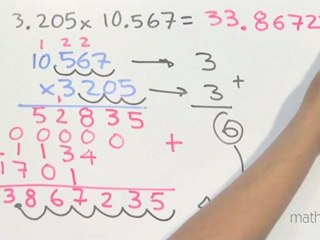 3.205 x 10.567 = 33.8672
1 2 2
10,567 → 3
x 3,205 → 3 +
52835 6
0 0 0 0 0 +
1 1 3 4
1 7 0 1
3 8 6 7 2 3 5
math